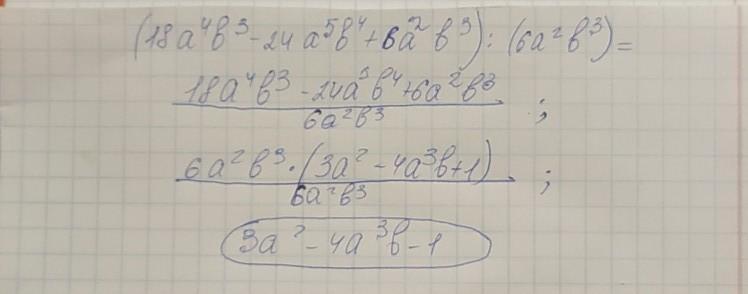 (18a⁴b³ - 24a⁵b⁴ + 6a²b³) : (6a²b³) =
18a⁴b³ - 24a⁵b⁴ + 6a²b³ ;
6a²b³
6a²b³ · (3a² - 4a³b + 1) ;
6a²b³
3a² - 4a³b - 1